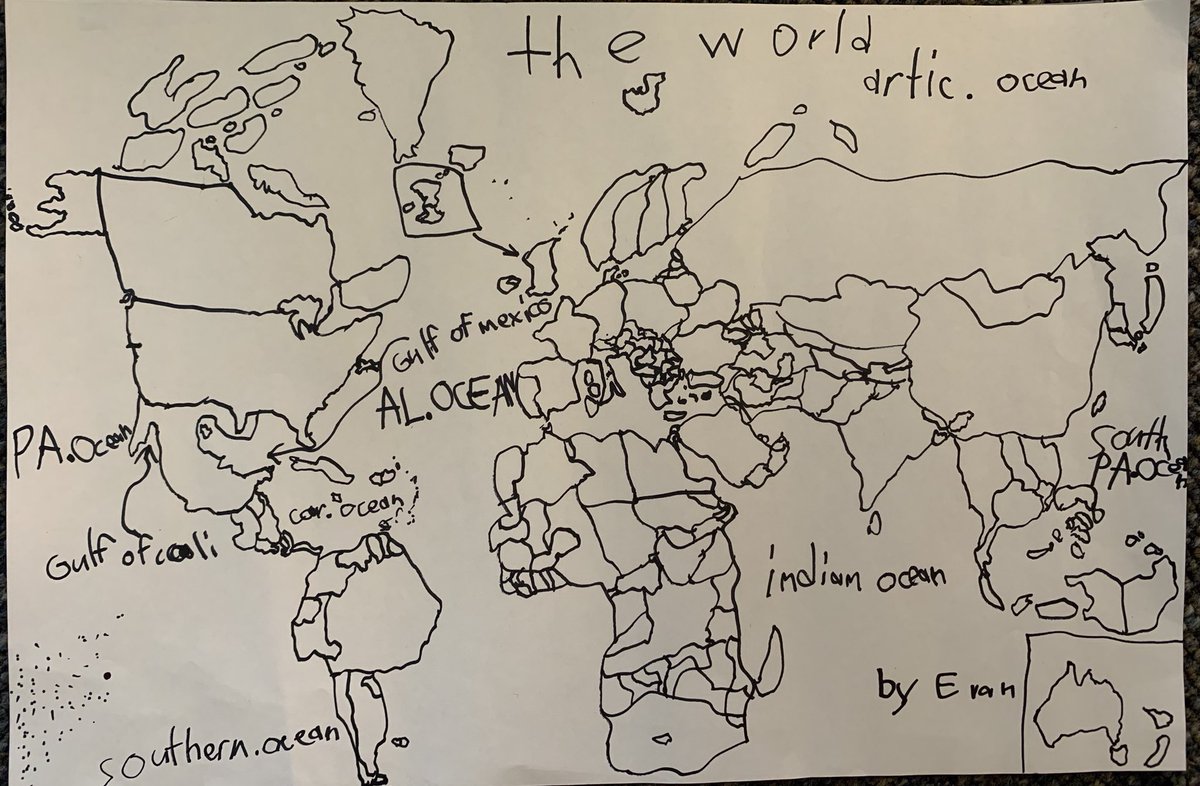 the world
artic. ocean
Gulf of mexico
AL.OCEAN
PA.ocean
South
PA.Ocean
car. ocean
Gulf of cali
indian ocean
by Evan
southern.ocean